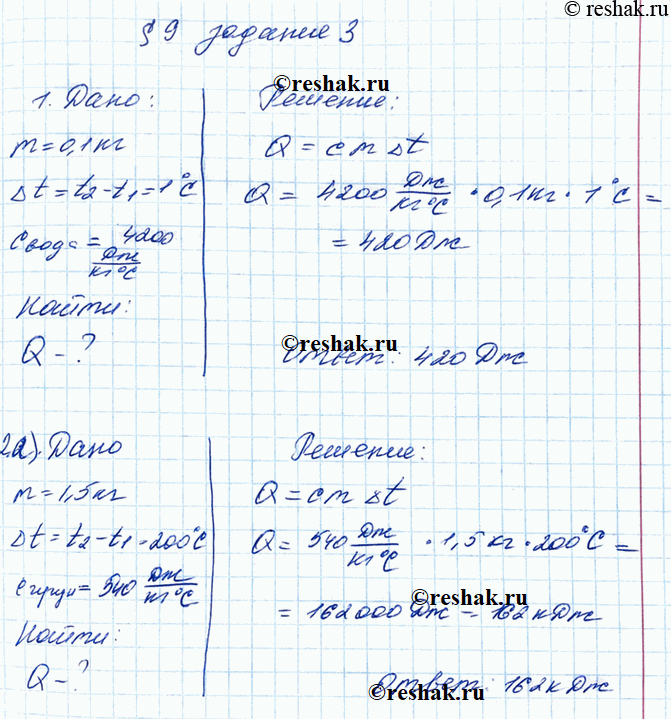 © reshak.ru
§ 9 задание 3
©reshak.ru
1. Дано:
m = 0,1 кг
Δt = t₂ - t₁ = 1°C
Cвода = 4200 Дж/кг°C
Найти:
Q - ?
Решение:
Q = c m Δt
Q = 4200 Дж/кг°C · 0,1 кг · 1°C =
= 420 Дж
©reshak.ru
Ответ: 420 Дж
2.а). Дано
m = 1,5 кг
Δt = t₂ - t₁ = 200°C
= 540 Дж/кг°C
Найти:
Q - ?
Решение:
Q = c m Δt
Q = 540 Дж/кг°C · 1,5 кг · 200°C =
©reshak.ru
= 162000 Дж = 162 кДж
Ответ: 162 кДж
©reshak.ru